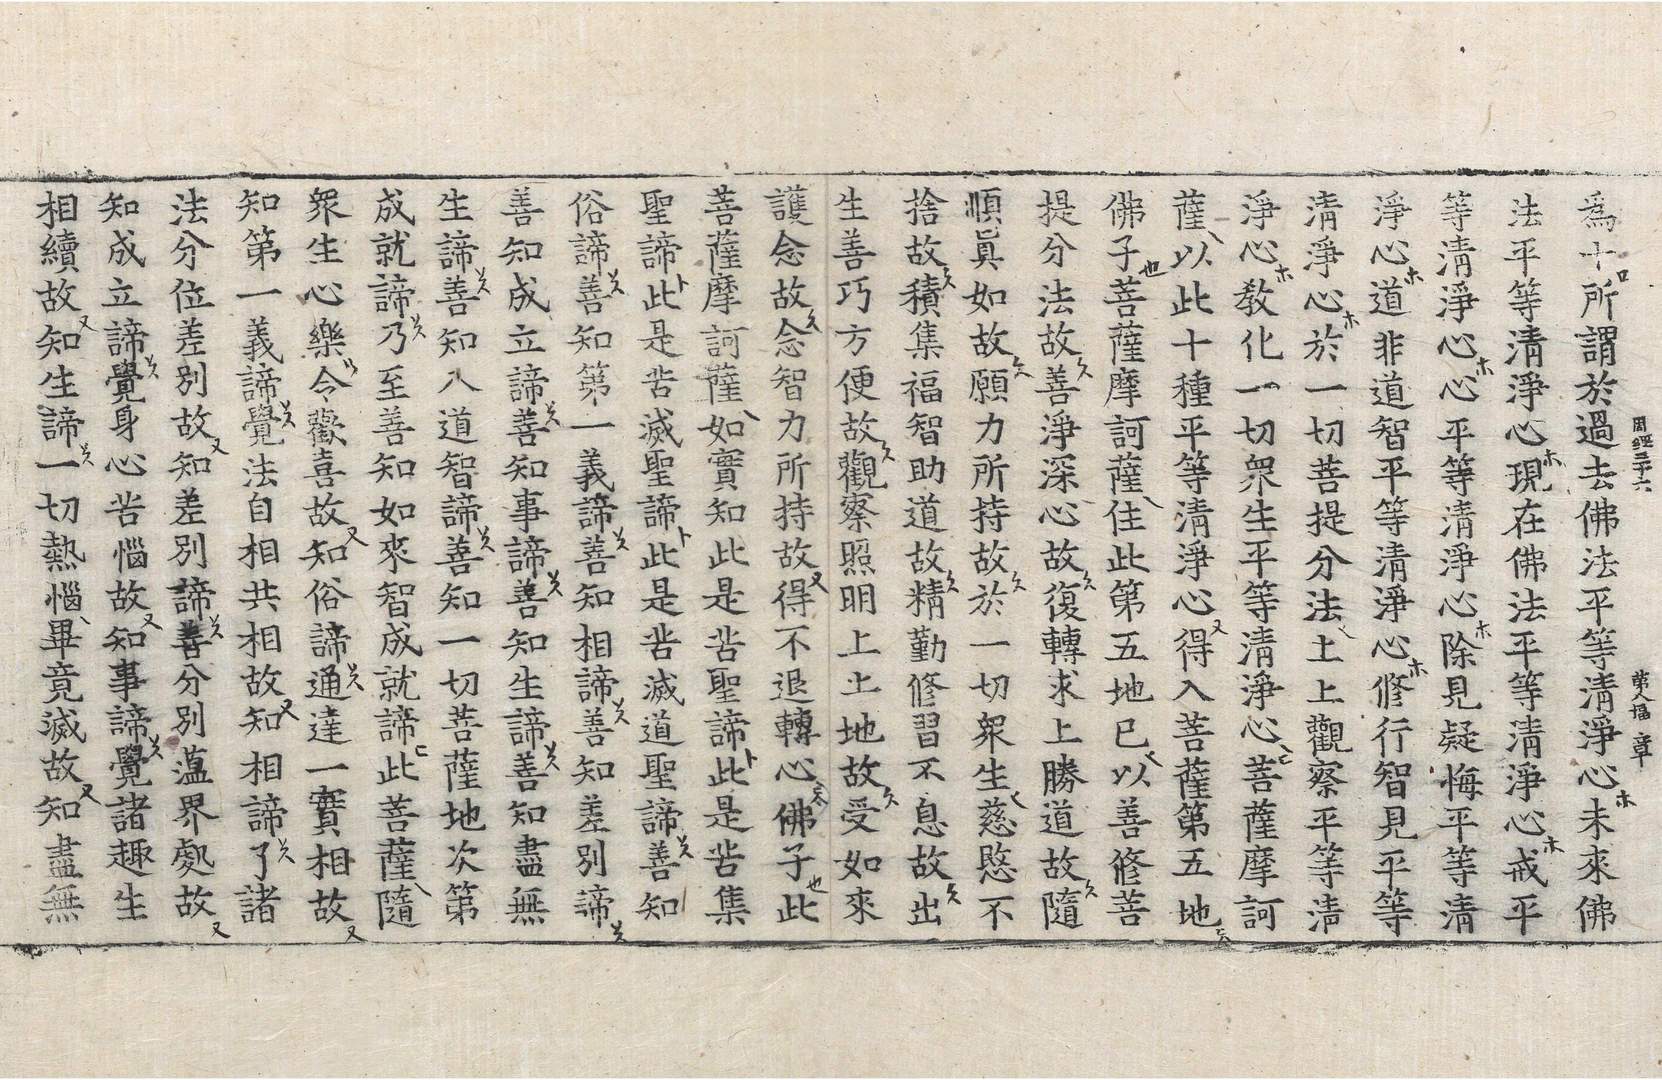 爲十所謂於過去佛法平等清淨心未來佛
法平等清淨心現在佛法平等清淨心戒平
等清淨心心平等清淨心除見疑悔平等清
淨心道非道智平等清淨心修行智見平等
清淨心於一切菩提分法上上觀察平等清
淨心教化一切衆生平等清淨心菩薩摩訶
薩以此十種平等清淨心得入菩薩第五地
佛子菩薩摩訶薩住此第五地已以善修菩
提分法故善淨深心故復轉求上勝道故隨
順眞如故願力所持故於一切衆生慈愍不
捨故積集福智助道故精勤修習不息故出
生善巧方便故觀察照明上上地故受如來
護念故念智力所持故得不退轉心佛子此
菩薩摩訶薩如實知此是苦聖諦此是苦集
聖諦此是苦滅聖諦此是苦滅道聖諦善知
俗諦善知第一義諦善知相諦善知差別諦
善知成立諦善知事諦善知生諦善知盡無
生諦善知入道智諦善知一切菩薩地次第
成就諦乃至善知如來智成就諦此菩薩隨
衆生心樂令歡喜故知俗諦通達一實相故
知第一義諦覺法自相共相故知相諦了諸
法分位差別故知差別諦善分別蘊界處故
知成立諦覺身心苦惱故知事諦覺諸趣生
相續故知生諦一切熱惱畢竟滅故知盡無